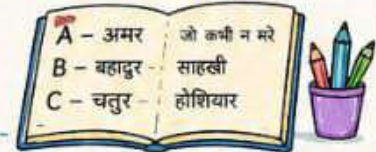 A – अमर जो कभी न मरे
B – बहादुर - साहखी
C – चतुर - होशियार